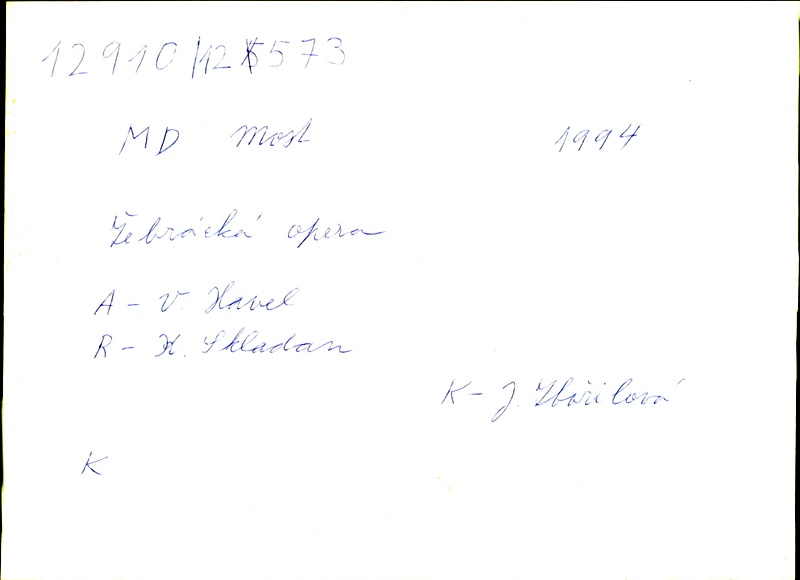 12910/12 5573
MD Most 1994
Žebrácká opera
A - V. Havel
R - K. Skladan
K - J. Zbořilová
K